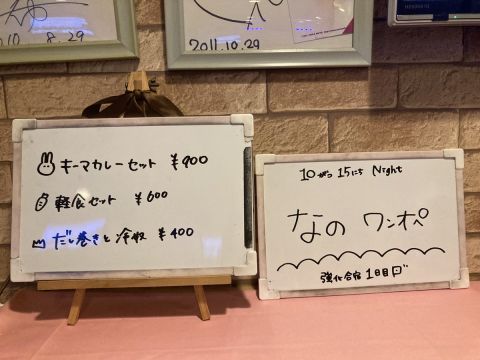 10 8.29
2011.10.29
キーマカレーセット ¥900
軽食セット ¥600
だし巻きと冷奴 ¥400
10がつ 15にち Night
なの ワンオペ
強化合宿 1日目